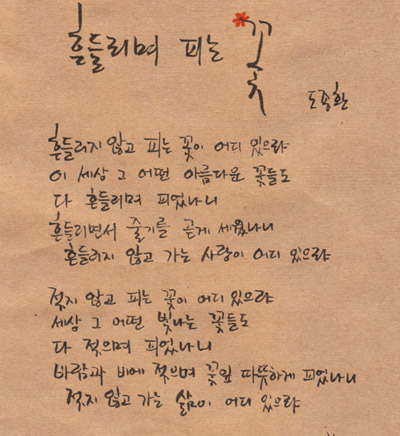 흔들리며 피는 꽃
도종환
흔들리지 않고 피는 꽃이 어디 있으랴
이 세상 그 어떤 아름다운 꽃들도
다 흔들리며 피었나니
흔들리면서 줄기를 곧게 세웠나니
흔들리지 않고 가는 사랑이 어디 있으랴
젖지 않고 피는 꽃이 어디 있으랴
세상 그 어떤 빛나는 꽃들도
다 젖으며 피었나니
바람과 비에 젖으며 꽃잎 따뜻하게 피었나니
젖지 않고 가는 삶이 어디 있으랴